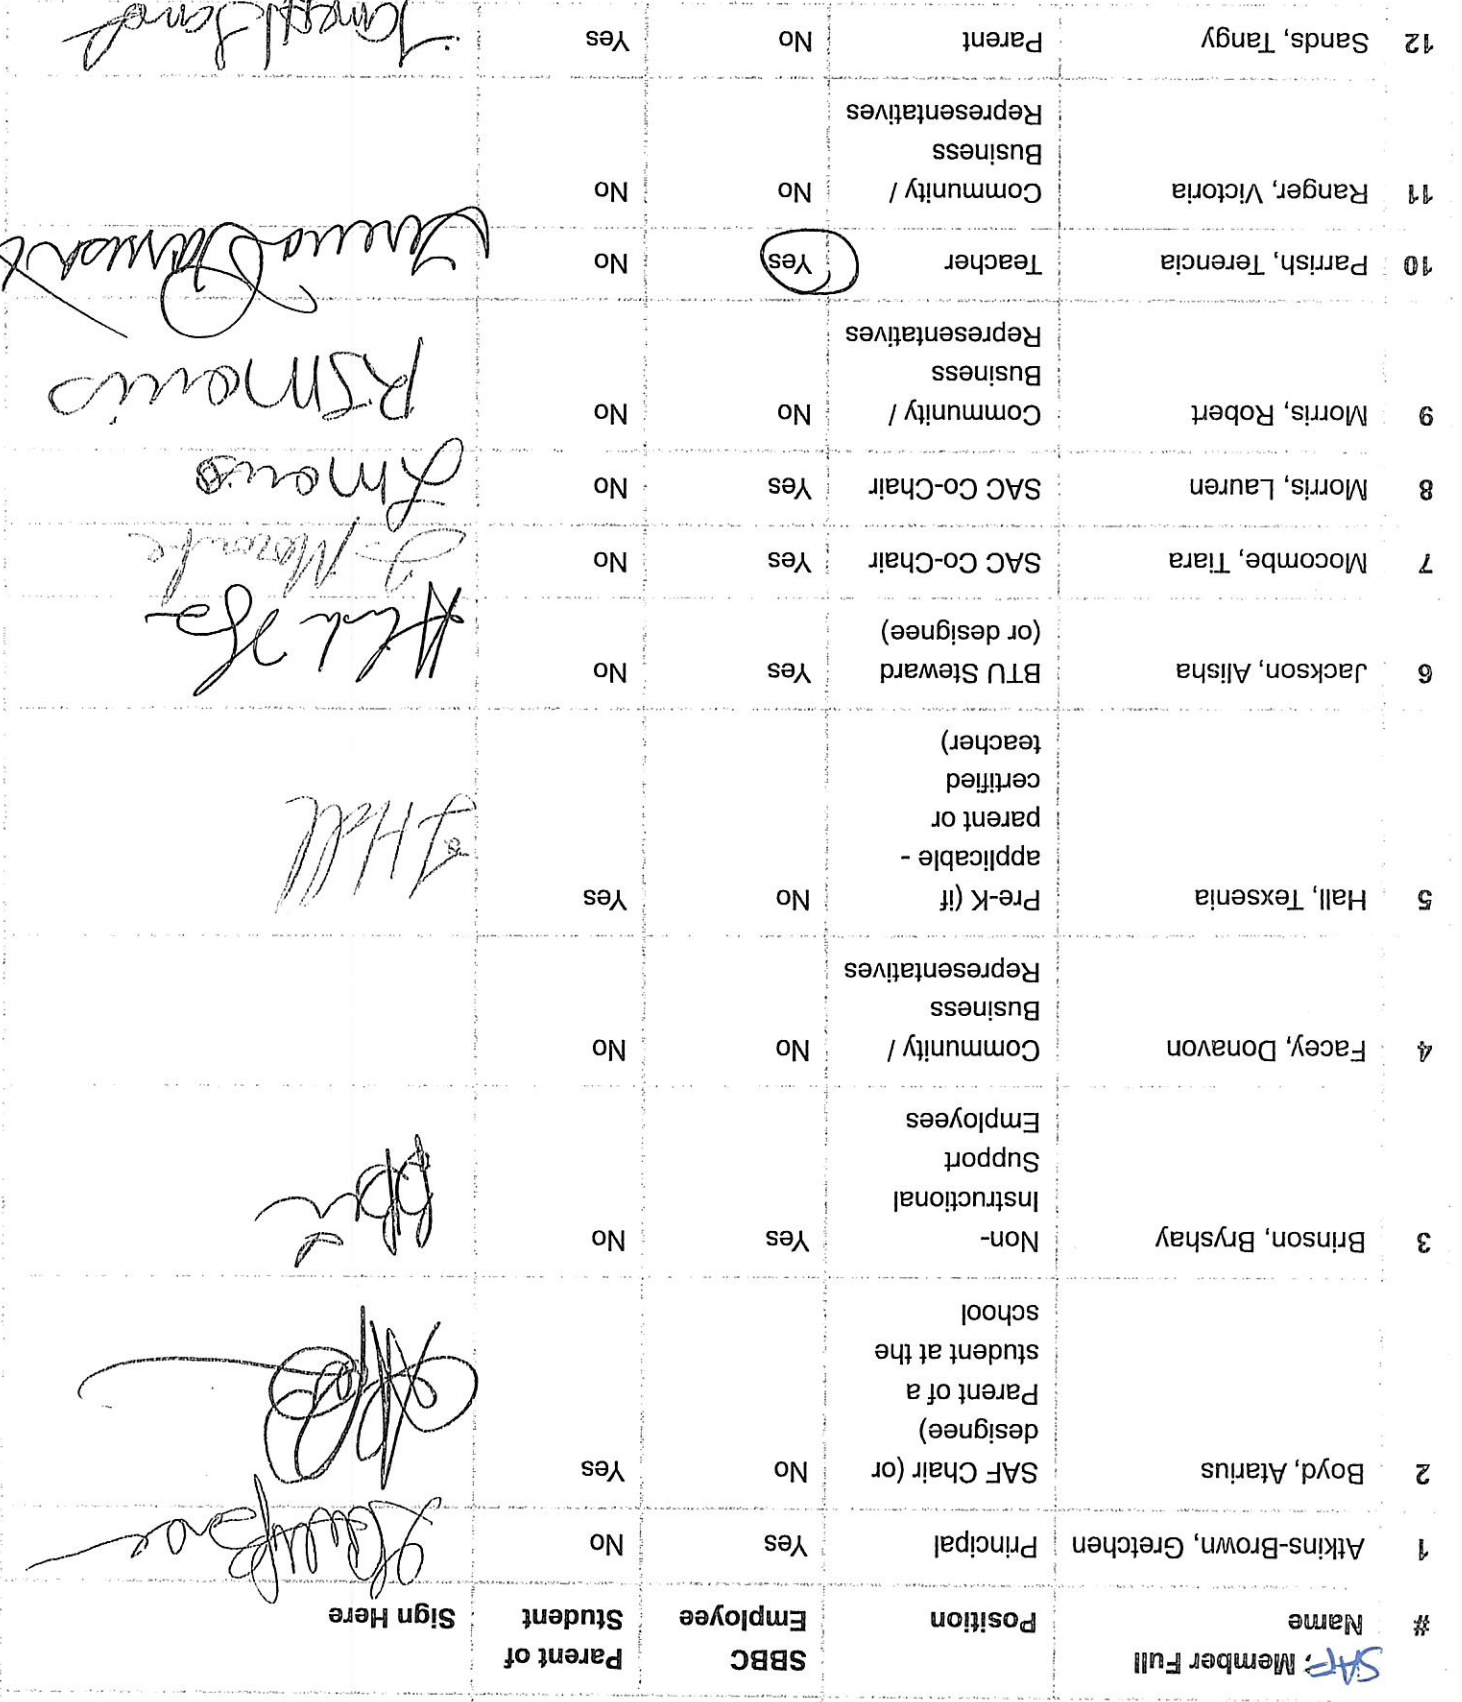 SAF
Member Full Name
#
Position
SBBC Employee
Parent of Student
Sign Here
1 Atkins-Brown, Gretchen Principal Yes No
2 Boyd, Atarius SAF Chair (or Yes No
designee)
Parent of a
student at the
school
3 Brinson, Bryshay Non- Yes No
Instructional
Support
Employees
4 Facey, Donavon Community / No No
Business
Representatives
5 Hall, Texsenia Pre-K (if No Yes
applicable -
parent or
certified
teacher)
T Hall
6 Jackson, Alisha BTU Steward Yes No
(or designee)
7 Mocombe, Tiara SAC Co-Chair Yes No
T. Mocombe
8 Morris, Lauren SAC Co-Chair Yes No
L Morris
9 Morris, Robert Community / No No
Business
Representatives
RSMorris
10 Parrish, Terencia Teacher Yes No
Terencia Parrish
11 Ranger, Victoria Community / No No
Business
Representatives
12 Sands, Tangy Parent No Yes